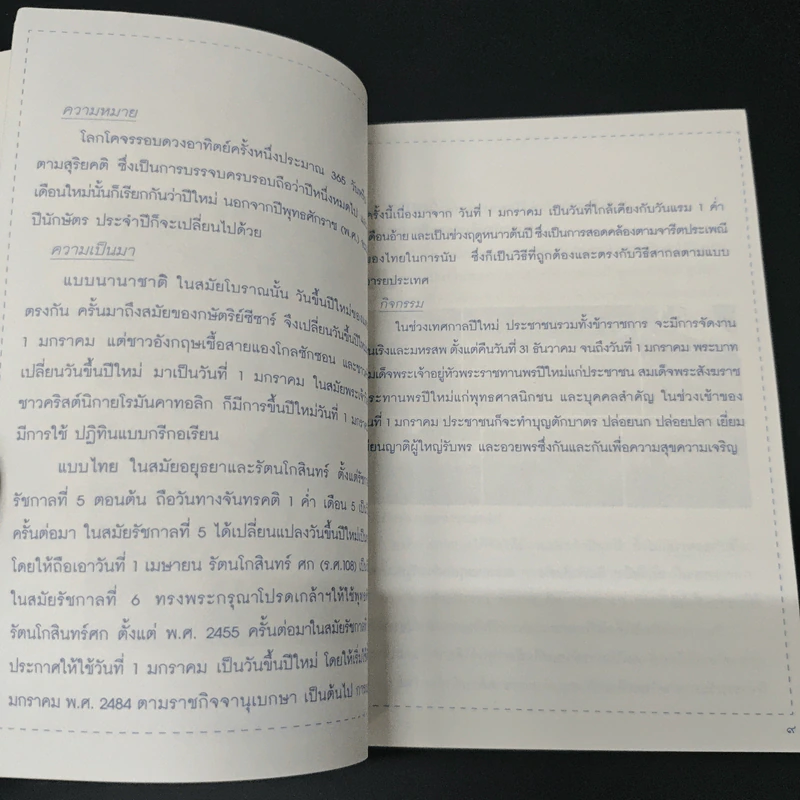 ความหมาย
โลกโคจรรอบดวงอาทิตย์ครั้งหนึ่งประมาณ 365
ตามสุริยคติ ซึ่งเป็นการบรรจบครบรอบถือว่าปีหนึ่งหมดไป
เดือนใหม่นั้นก็เรียกกันว่าปีใหม่ นอกจากปีพุทธศักราช (พ.ศ.)
ปีนักษัตร ประจำปีก็จะเปลี่ยนไปด้วย
ความเป็นมา
แบบนานาชาติ ในสมัยโบราณนั้น วันขึ้นปีใหม่ของ
ตรงกัน ครั้นมาถึงสมัยของกษัตริย์ซีซาร์ จึงเปลี่ยนวันขึ้นปีใหม่
1 มกราคม แต่ชาวอังกฤษเชื้อสายแองโกลซักซอน และชาว
เปลี่ยนวันขึ้นปีใหม่ มาเป็นวันที่ 1 มกราคม ในสมัยพระเจ้า
ชาวคริสต์นิกายโรมันคาทอลิก ก็มีการขึ้นปีใหม่วันที่ 1 มกรา
มีการใช้ ปฏิทินแบบกรีกอเรียน
แบบไทย ในสมัยอยุธยาและรัตนโกสินทร์ ตั้งแต่
รัชกาลที่ 5 ตอนต้น ถือวันทางจันทรคติ 1 ค่ำ เดือน 5
ครั้นต่อมา ในสมัยรัชกาลที่ 5 ได้เปลี่ยนแปลงวันขึ้นปีใหม่
โดยให้ถือเอาวันที่ 1 เมษายน รัตนโกสินทร์ ศก (ร.ศ.108)
ในสมัยรัชกาลที่ 6 ทรงพระกรุณาโปรดเกล้าฯให้ใช้
รัตนโกสินทร์ศก ตั้งแต่ พ.ศ. 2455 ครั้นต่อมาในสมัยรัชกาลที่
ประกาศให้ใช้วันที่ 1 มกราคม เป็นวันขึ้นปีใหม่ โดยให้เริ่ม
มกราคม พ.ศ. 2484 ตามราชกิจจานุเบกษา เป็นต้นไป
ครั้งนี้เนื่องมาจาก วันที่ 1 มกราคม เป็นวันที่ใกล้เคียงกับวันแรม 1 ค่ำ
เดือนอ้าย และเป็นช่วงฤดูหนาวต้นปี ซึ่งเป็นการสอดคล้องตามจารีตประเพณี
ของไทยในการนับ ซึ่งก็เป็นวิธีที่ถูกต้องและตรงกับวิธีสากลตามแบบ
ารยประเทศ
กิจกรรม
ในช่วงเทศกาลปีใหม่ ประชาชนรวมทั้งข้าราชการ จะมีการจัดงาน
นเริงและมหรสพ ตั้งแต่คืนวันที่ 31 ธันวาคม จนถึงวันที่ 1 มกราคม พระบาท
มเด็จพระเจ้าอยู่หัวพระราชทานพรปีใหม่แก่ประชาชน สมเด็จพระสังฆราช
ระทานพรปีใหม่แก่พุทธศาสนิกชน และบุคคลสำคัญ ในช่วงเช้าของ
นที่ 1 มกราคม ประชาชนก็จะทำบุญตักบาตร ปล่อยนก ปล่อยปลา เยี่ยม
ยนญาติผู้ใหญ่รับพร และอวยพรซึ่งกันและกันเพื่อความสุขความเจริญ
๙